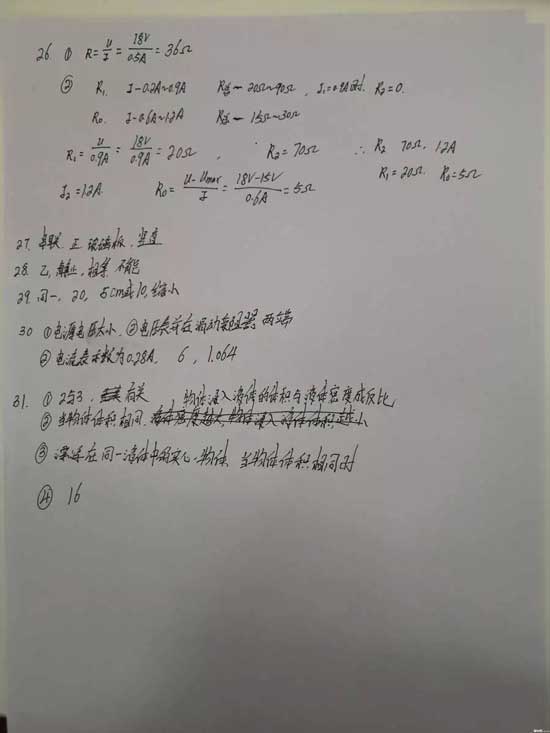 26. ① R=U/I=18V/0.5A=36Ω
② R₁ I-0.2A~0.9A R总-20Ω~90Ω, I₁=0.9A时 R₂=0.
R₀ I-0.6A~1.2A R总-15Ω~30Ω
R₁=U/0.9A=18V/0.9A=20Ω, R₂=70Ω ∴ R₂ 70Ω, 1.2A
R₁=20Ω R₀=5Ω
I₂=1.2A R₀=U-Umax/I=18V-15V/0.6A=5Ω
27. 串联 正 玻璃板
28. 乙, 静止, 相等 不能
29. 同一, 20, 5cm或10, 缩小
30 ①电源电压太小, ②电压表并在滑动变阻器两端
③电流表示数为0.28A, 6, 1.064
31. ① 2与3, 有关 物体浸入液体的体积与液体密度成反比
② 当物体体积相同, 液体密度越大, 物体浸入液体体积越小
③ 在同一液体中 物体, 当物体体积相同时
④ 16